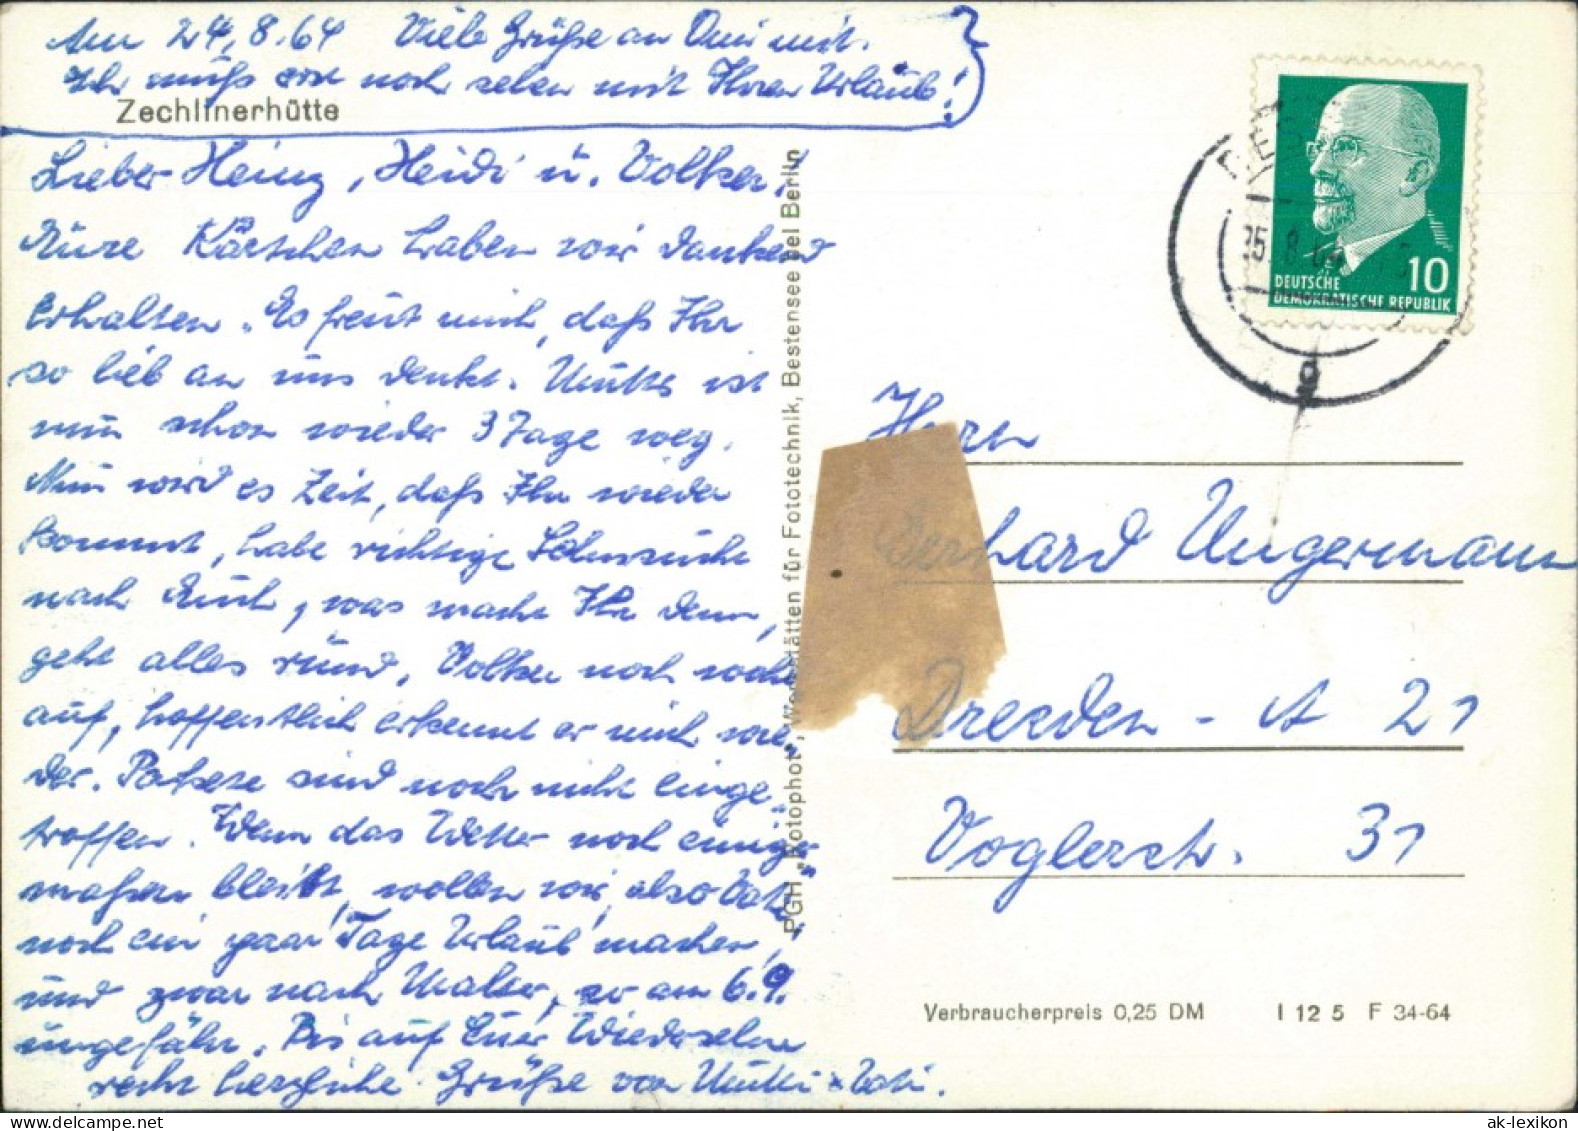 Am 24.8.64 Viele Grüße an Omi mit.
Ich muß erst noch sehen mit Ihren Urlaub!
Zechlinerhütte
Lieber Heinz, Heidi u. Volker!
Eure Kärtchen haben wir dankend
erhalten. Es freut mich, daß Ihr
so lieb an uns denkt. Mutti ist
nun schon wieder 3 Tage weg.
Nun wird es Zeit, daß Ihr wieder
kommt, habe richtige Sehnsucht
nach Euch, was macht Ihr denn,
geht alles rund. Volker noch wohl
auf, hoffentlich erkennt er mich wie-
der. Pakete sind noch nicht einge-
troffen. Wenn das Wetter noch einiger
maßen bleibt, wollen wir, also Vati
noch ein paar Tage Urlaub machen!
und zwar nach Malter, so am 6.9.
ungefähr. Bis auf Euer Wiedersehn
recht herzliche Grüße von Mutti + Vati.
PGH „Rotophot", Werkstätten für Fototechnik, Bestensee bei Berlin
DRESDEN
25.8.64
g
10
DEUTSCHE
DEMOKRATISCHE REPUBLIK
Herrn
Gerhard Ungermann
Dresden - A 21
Voglerstr. 31
Verbraucherpreis 0,25 DM I 12 5 F 34-64
ak-lexikon